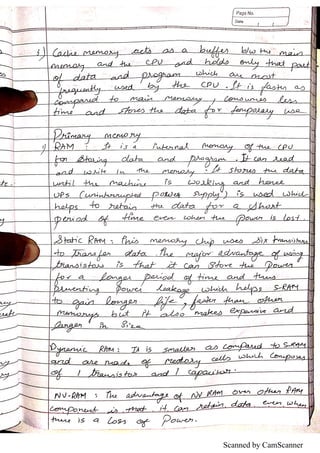 Page No.
Date
3) Cache memory acts as a buffer b/w the main
memory and the CPU and holds only that part
of data and program which are most
frequently used by the CPU. It is faster as
compared to main memory, consumes less
time and stores the data for temporary use
Primary memory
1) RAM : It is a internal memory of the CPU
for storing data and program. It can read
and write in the memory. It stores the data
until the machine is working and hence
UPS (uninterrupted power supply) is used which
helps to retain the data for a short
period of time even when the power is lost.
Static RAM : This memory chip uses six transistors
to transfer data. The major advantage of using
transistors is that it can store the power
for a longer period of time and thus
preventing power leakage which helps S-RAM
to gain longer life, faster than other
memorys but it also makes expansive and
larger in size
Dynamic RAM : It is smaller as compared to S-RAM
and are made of memory cells which composes
of 1 transistor and 1 capacitor.
NV-RAM : The advantage of NV RAM over other RAM
component is that it can retain data even when
there is a loss of power.
Scanned by CamScanner